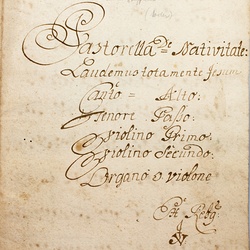 Pastorella de Nativitate:
Laudemus tota mente Jesum
Canto = Alto:
Tenore Basso:
Violino Primo:
Violino Secundo:
Organo o violone